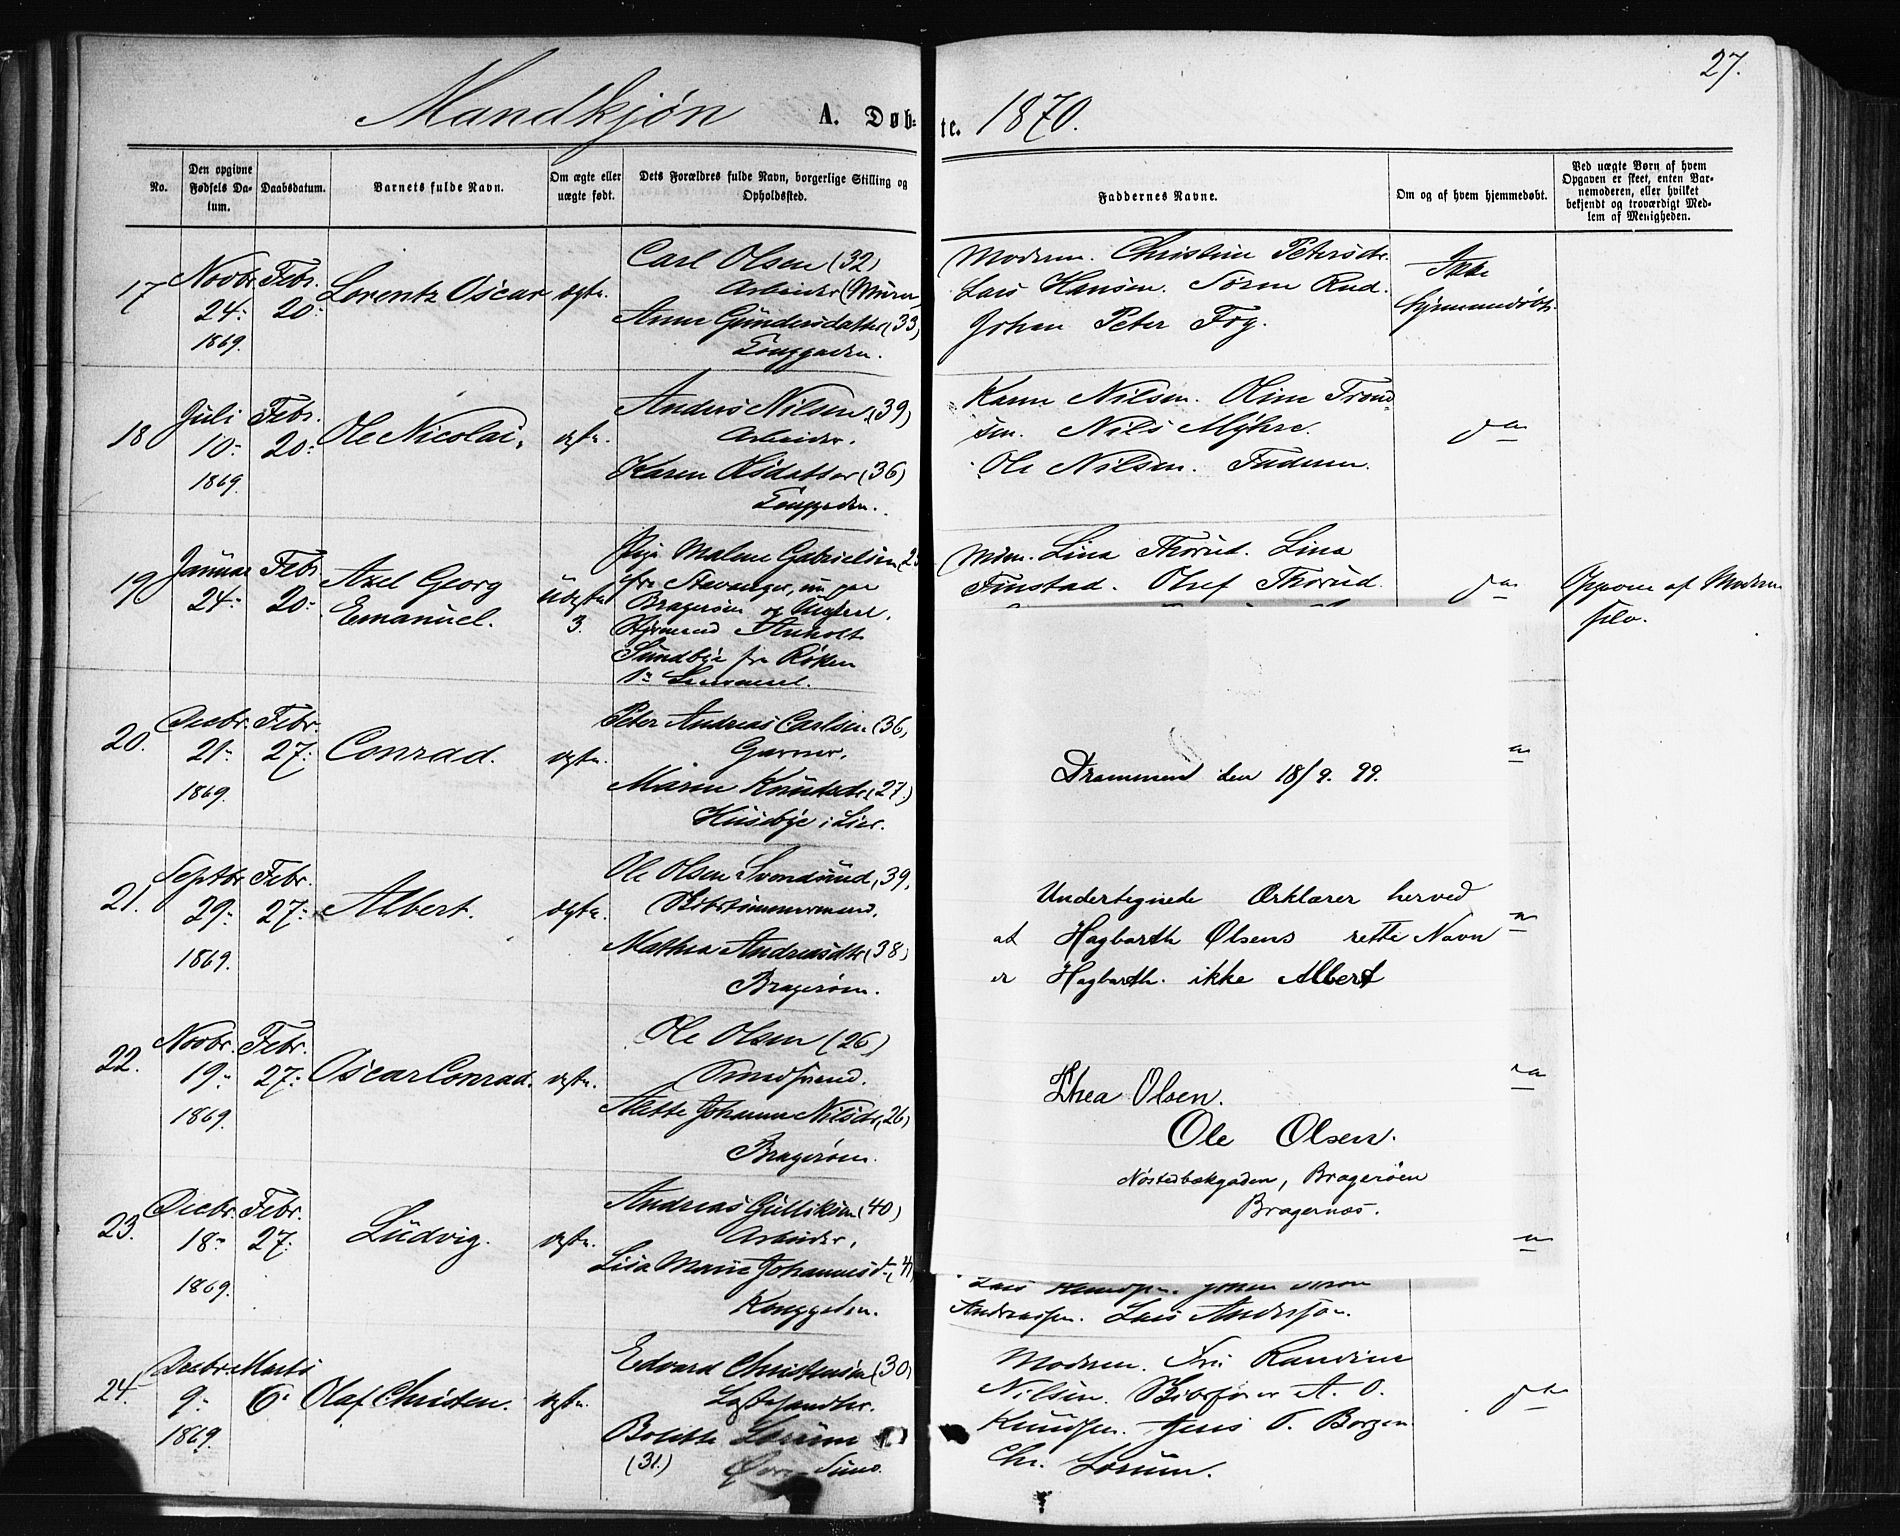 27.
Mandkjøn A. Døb- te. 1870.
No.
Den opgivne Fødsels Da- tum.
Daabsdatum.
Barnets fulde Navn.
Om ægte eller uægte født.
Dets Forældres fulde Navn, borgerlige Stilling og Opholdssted.
Faddernes Navne.
Om og af hvem hjemmedøbt.
Ved uægte Børn af hvem Opgaven er skeet, enten Bar- nemoderen, eller hvilket bekjendt og troværdigt Med- lem af Menigheden.
17 Novbr. 24- 1869. Febr. 20- Lorentz Oscar ægte.
Carl Olsen (32)
Arbeider (Murer)
Anne Gundersdatter (33)
Konggaden.
Moderen. Christine Petersdr.
Lars Hansen. Søren Rud.
Johan Peter Fog.
Ikke
hjemmedøbt.
18 Juli 10- 1869. Febr. 20- Ole Nicolai. ægte.
Anders Nilsen (39)
Arbeider.
Karen Olsdatter (36)
Konggaden.
Karen Nilsen. Oline Trond-
sen. Nils Myhre.
Ole Nilsen. Faderen.
do
19 Januar 24- Febr. 20- Axel Georg
Emanuel.
Uægte
3.
Pige Malene Gabrielsen
fra Stavanger, nu paa
Bragerøen og Ungkarl.
Styrmand
Sundbye fra Røken
1ste Leiermaal.
Moderen. Lina Thorud. Lina
Finstad. Olaf Thorud.
do
Opgaven af Moderen
selv.
20. Decbr. 21- 1869. Febr. 27- Conrad. ægte.
Peter Andreas Carlsen (36)
Garver.
Maren Knudsdr. (27)
Husebye i Lier.
Drammen den 18/9. 99.
21. Septbr. 29- 1869. Febr. 27- Albert. ægte.
Ole Olsen Svendsrud (39)
Skibstømmermand.
Mathea Andreasdtr (38)
Bragerøen.
Undertegnede Erklærer herved
at Hagbarth Olsens rette Navn
er Hagbarth. ikke Albert
22. Novbr. 19- 1869. Febr. 27- Oscar Conrad. ægte.
Ole Olsen (26)
Smedsvend.
Mette Johanne Nilsdr. (26)
Bragerøen.
Thea Olsen.
Ole Olsen.
Nøstedbækgaden, Bragerøen
Bragernæs.
23. Decbr. 18- 1869. Febr. 27- Ludvig. ægte.
Andreas Gulliksen (40)
Arbeider.
Lisa Marie Johannesdr.
Konggaden.
Andreassen. Lars Anderson.
24 Decbr. 9- 1869. Marts 6- Olaf Christen. ægte.
Edvard Christensen (30)
Bolette Lorum
(31.)
Moderen. Fru Randine
Nilsen. Skibsfører A. O.
Knudsen. Jens T. Borgen
Chr. Lorum.
do